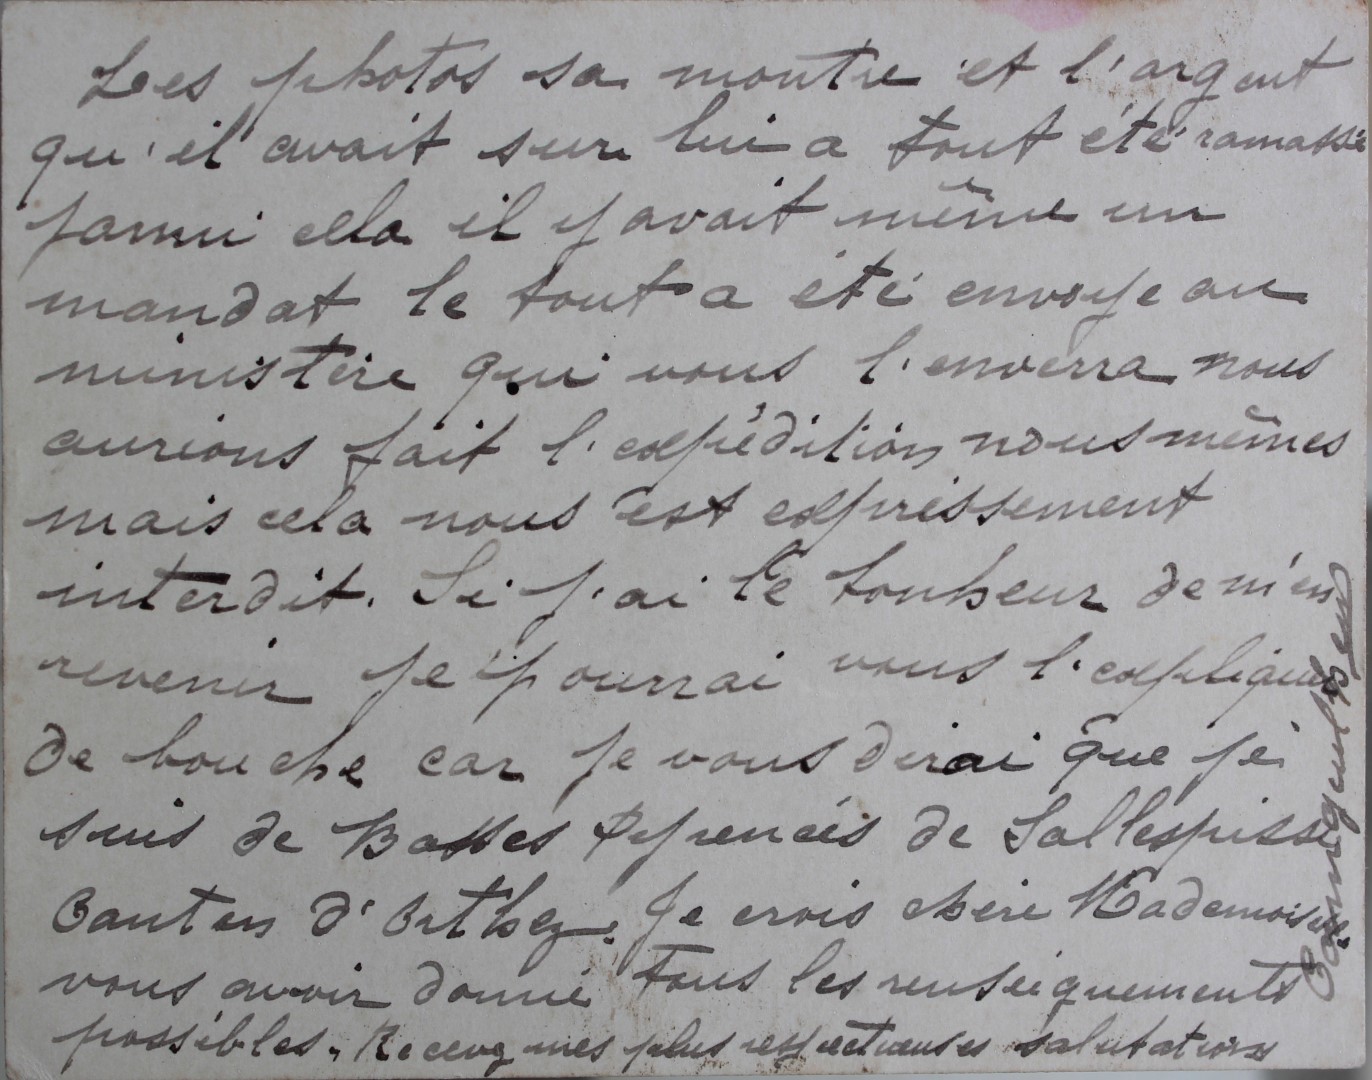 Les photos sa montre et l'argent
qu'il avait sur lui a tout été ramassé
parmi cela il y avait même un
mandat le tout a été envoye au
ministère qui vous l'enverra nous
aurions fait l'expédition nous mêmes
mais cela nous est expressement
interdit. Si j'ai le bonheur de m'en
revenir je pourrai vous l'expliquer
de bouche car je vous dirai que je
suis de Basses Pyrenées de Sallespisse
Canton d'Orthez. Je crois chère Mademoiselle
vous avoir donné tous les renseignements
possibles. Recevez mes plus respectueuses salutations